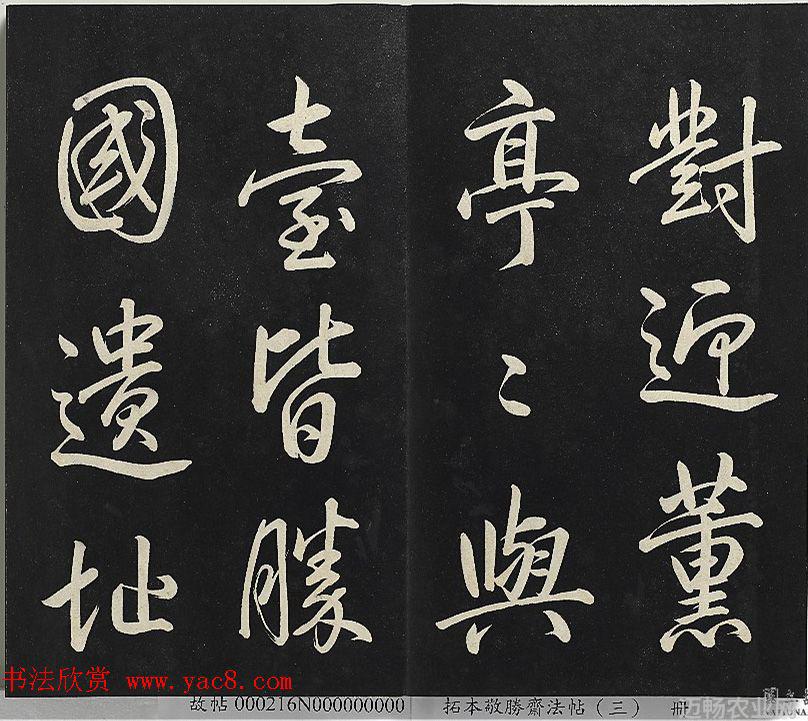 對迎薰
亭〻與
臺皆勝
國遺址
书法欣赏 www.yac8.com
故帖 000216N000000000 拓本敬勝齋法帖（三） 册